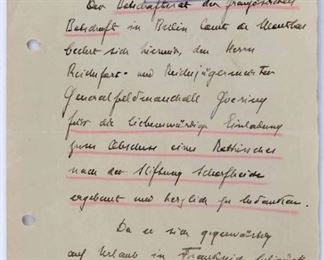 Der Botschaftsrat der französischen
Botschaft in Berlin Comte de Montbas
beehrt sich hierdurch dem Herrn
Reichsforst- und Reichsjägermeister
Generalfeldmarschall Goering
für die liebenswürdige Einladung
zum Abschuss eines Rothirsches
nach der Stiftung Schorfheide
ergebenst und herzlich zu bedanken.
Da er sich gegenwärtig
auf Urlaub in Frankreich befindet